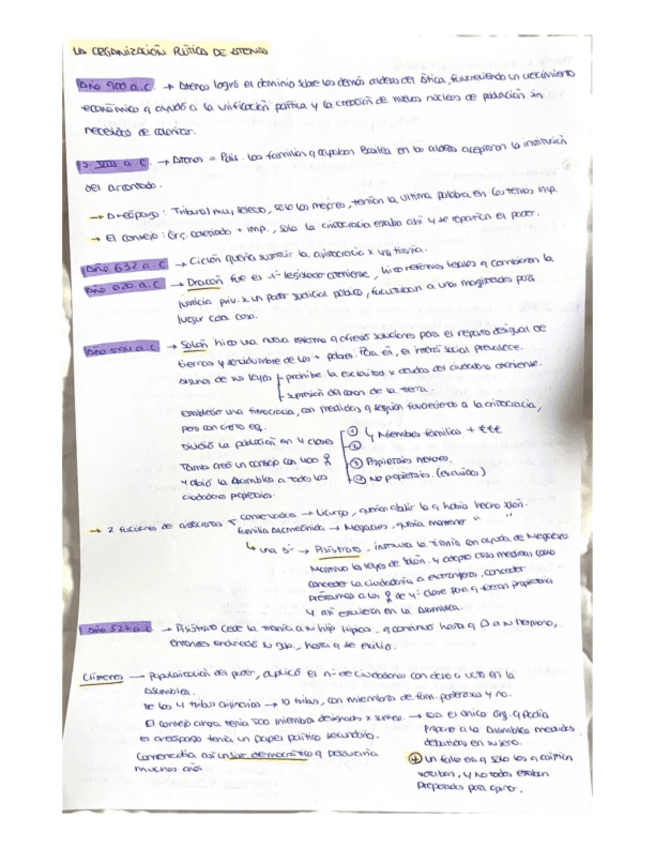 LA ORGANIZACIÓN POLÍTICA DE ATENAS
Año 900 a.C. → Atenas logró el dominio sobre las demás aldeas del Ática, favoreciendo un crecimiento
económico q ayudó a la unificación política y la creación de nuevos núcleos de población sin
necesidad de colonizar.
a.C. → Atenas = Polis. Las familias q ocupaban Basilea en las aldeas aceptaron la institución
del arcontado.
→ Areópago: Tribunal muy selecto, solo los mejores, tenían la última palabra en los temas imp.
→ El consejo: Org. colegiado + imp., solo la aristocracia estaba ahí y se repartían el poder.
Año 632 a.C → Cilón quería sustituir la aristocracia x una tiranía.
Año 620 a.C. → Dracón fue el 1º legislador ateniense, hizo reformas legales q cambiaron la
justicia priv. x un poder judicial público, facultaban a unos magistrados para
juzgar cada caso.
Año 594 a.C → Solón hizo una nueva reforma q ofreció soluciones para el reparto desigual de
tierras y servidumbre de los + pobres. Para él, el interés social prevalece.
algunas de sus leyes prohibe la esclavitud x deudas del ciudadano ateniense.
supresión del de la tierra.
Establece una timocracia, con medidas q seguían favoreciendo a la aristocracia,
pero con cierto eq.
Dividió la población en 4 clases ① ↳ Miembros familias + €€€
②
También creó un consejo con 400 ③ Propietarios menores.
y abrió la Asamblea a todos los ④ No propietarios. (excluidos)
ciudadanos propietarios.
→ 2 facciones de aristócratas conservadora → Licurgo, querían abolir lo q había hecho Solón.
familia Alcmeónida → Megacles, quería mantener " "
↳ una 3ª → Pisístrato, instaura la tiranía con ayuda de Megacles.
Mantuvo las leyes de Solón y adoptó otras medidas como
conceder la ciudadanía a extranjeros, conceder
préstamos a los de 4ª clase para q fueran propietarios
y así estuviesen en la Asamblea.
Año 527 a.C → Pisístrato cede la tiranía a su hijo Hipias, q continuó hasta q a su hermano,
entonces endureció su gob., hasta q se exilió.
Clístenes → Popularización del poder, amplió el nº de ciudadanos con dcho a voto en la
Asamblea.
De las 4 tribus → 10 tribus, con miembros de fam. poderosas y no.
El consejo ahora tenía 500 miembros designados x sorteo. → Era el único órg. q podía
el areópago tenía un papel político secundario. proponer a la Asamblea medidas
debatidas en su seno.
Comenzaba así un democrático q perduraría ⊕ Un fallo era q sólo los q asistían
muchos años. votaban, y no todos estaban
preparados para opinar.